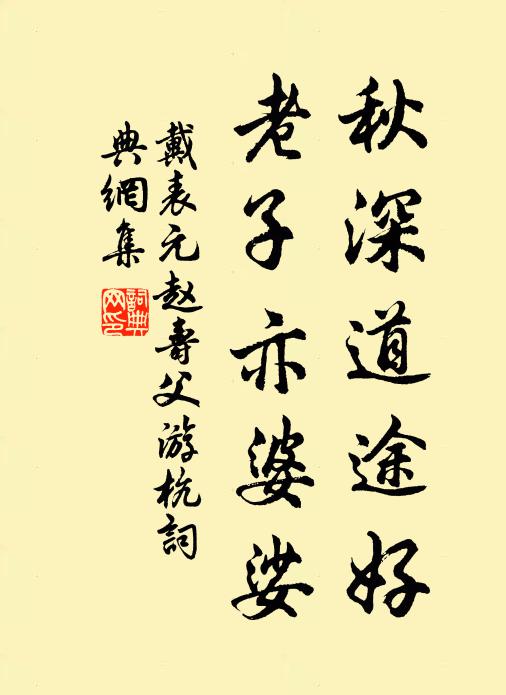 秋深道途好
老子亦婆娑
戴表元赵壽父游杭詞
典網集
詞典
网印